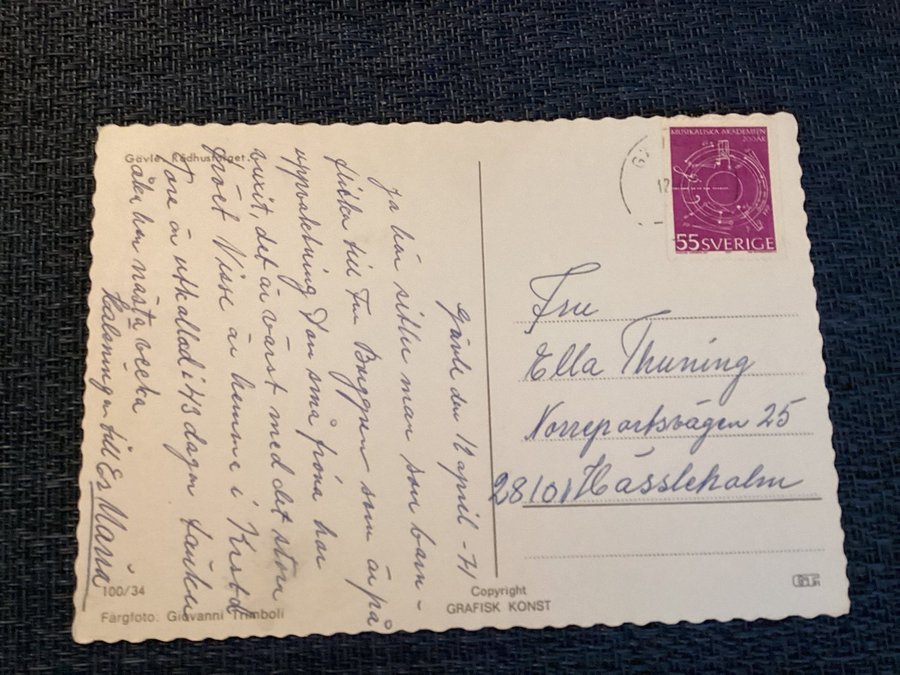 Gävle. Rådhustorget.
Gävle den 12 april -71
Ja här sitter man som barn-
flicka till Fru Baggens som är på
uppvaktning Den små fröna har
växit, det är värst med det stora
fröet Visse är hemma i Krstd
Tore är utkallad i 43 dagar tänker
åka hem nästa vecka
Hälsningar till Er Maria
100/34
Färgfoto: Giovanni Trimboli
Copyright
GRAFISK KONST
MUSIKALISKA AKADEMIEN
200 ÅR
55 SVERIGE
12
Fru
Ella Thuning
Norreportsvägen 25
28101 Hässleholm